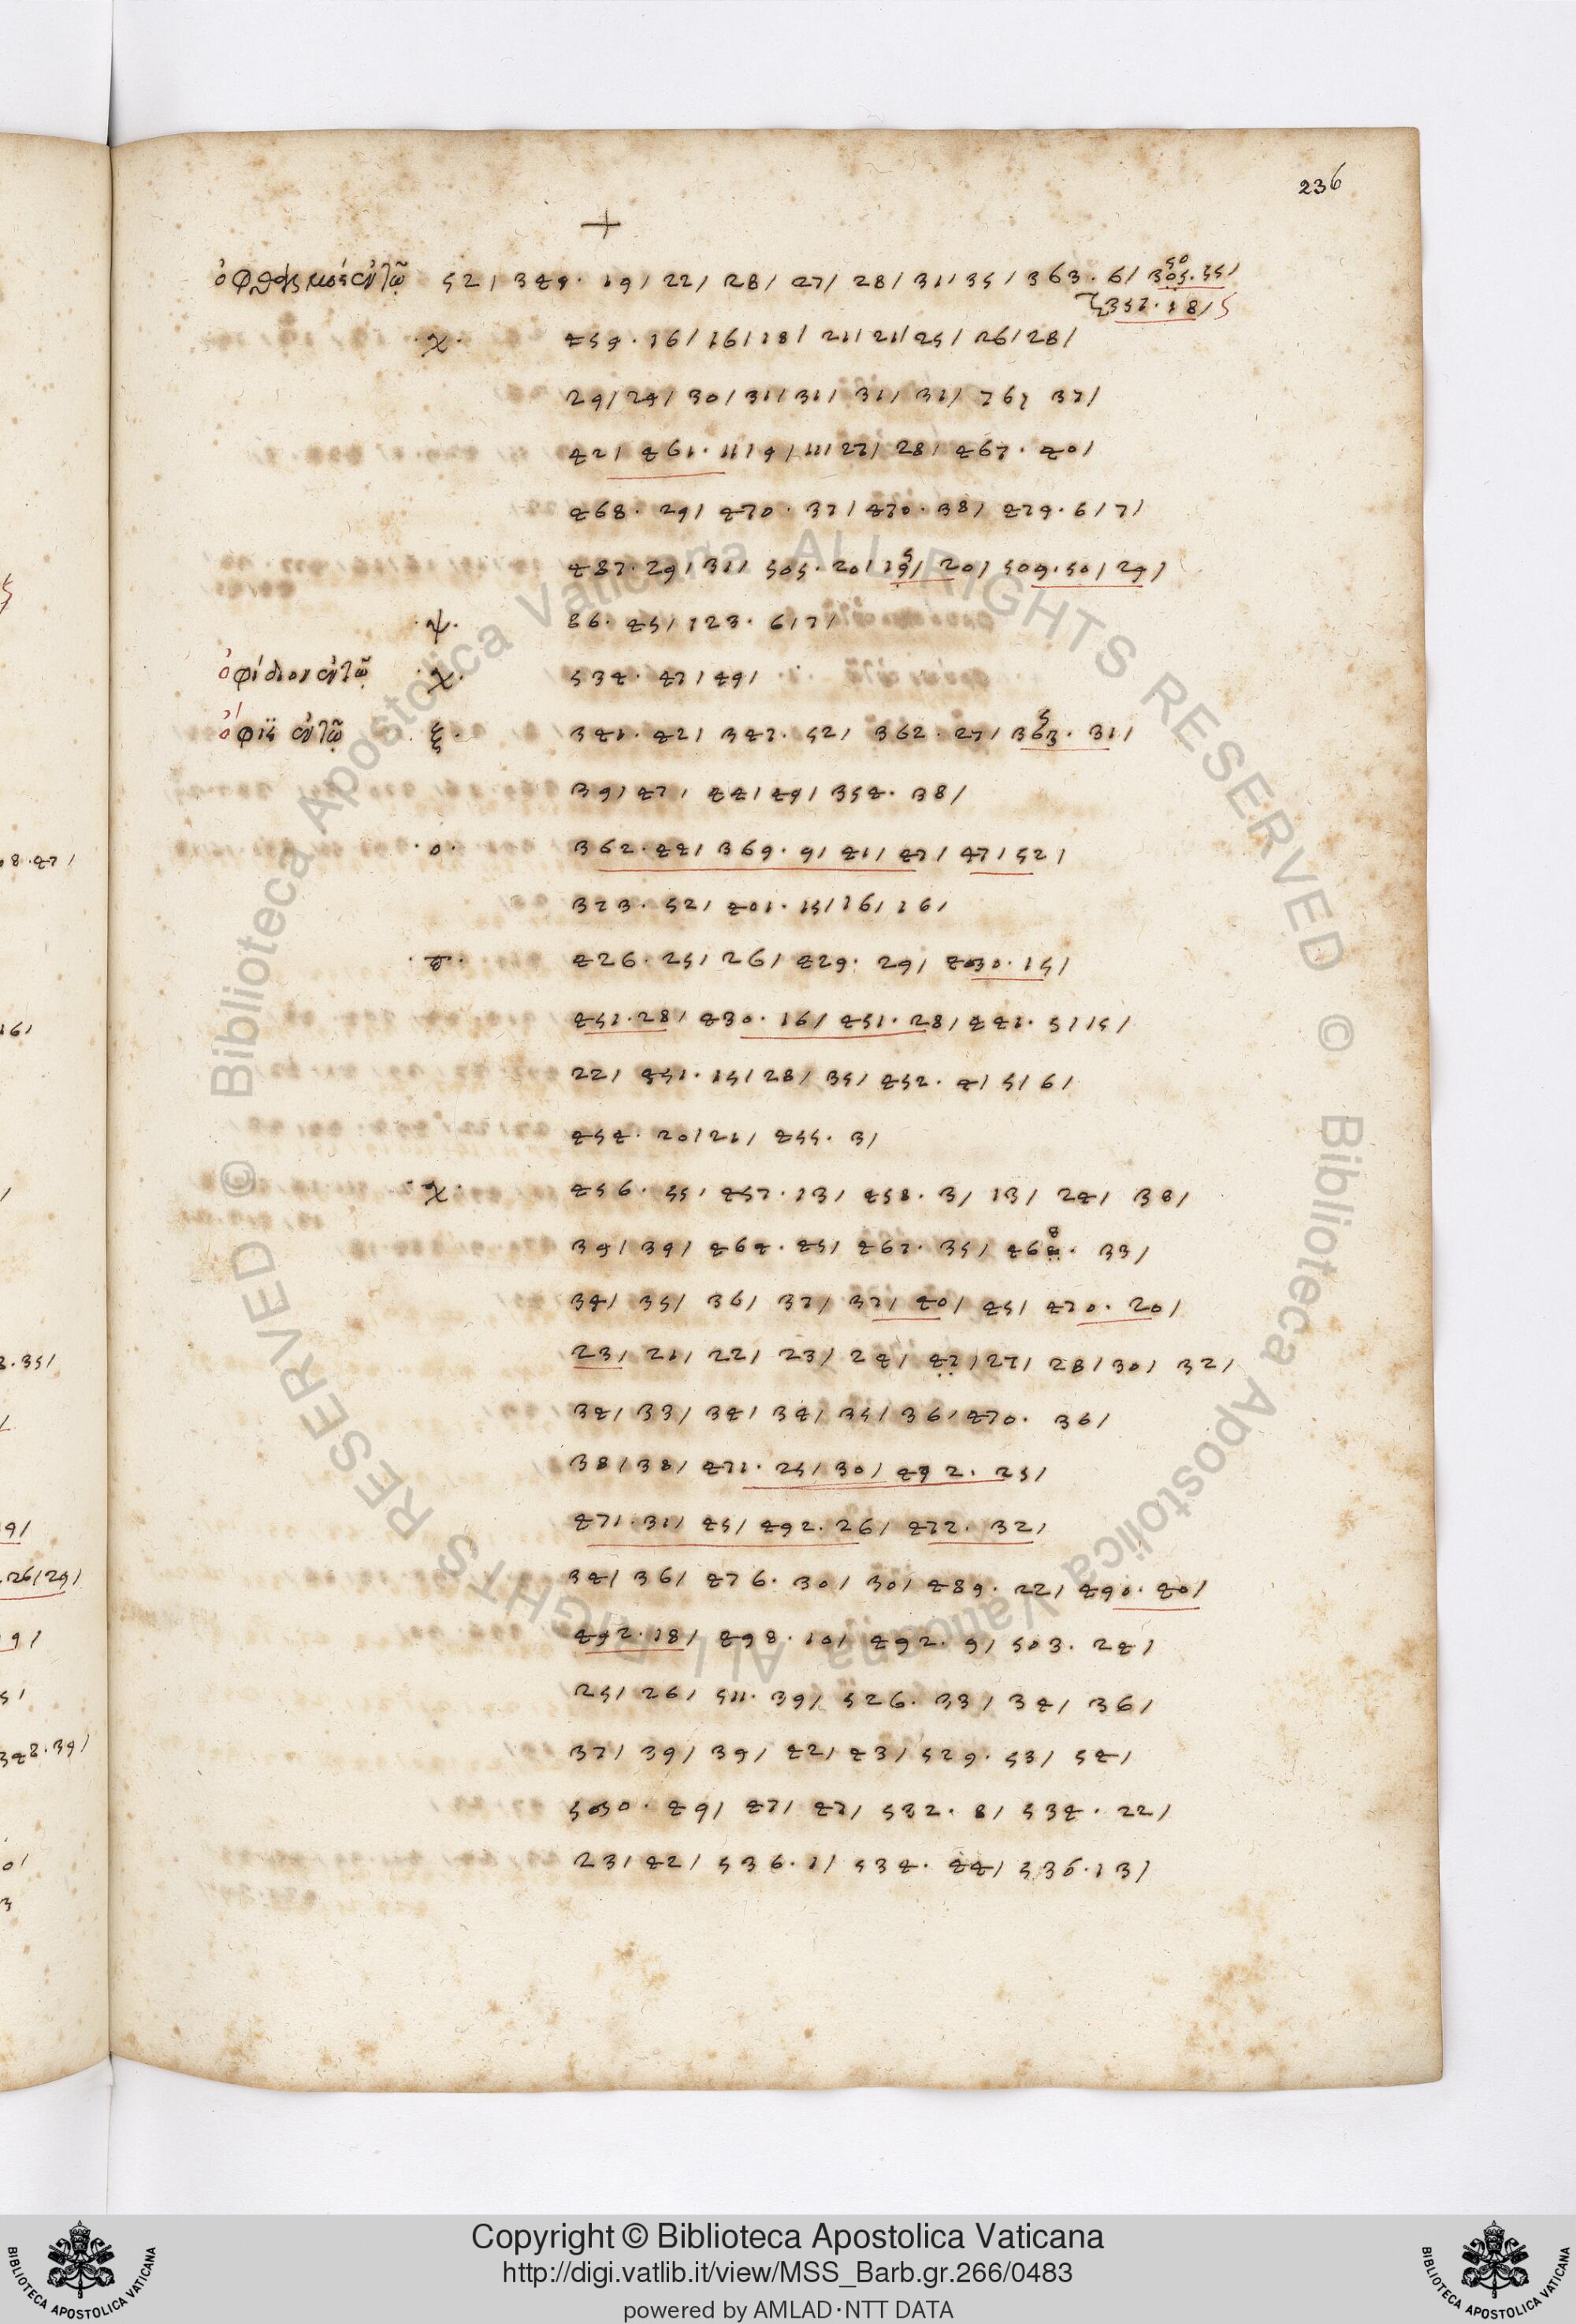 236
+
ὀφθαλμός ἐν τῷ 52/ 349. 19/ 22/ 28/ 27/ 28/ 31/ 35/ 363. 6/ 305. 55/
50
352. 18/
.χ. 459. 16/ 16/ 18/ 21/ 21/ 25/ 26/ 28/
29/ 29/ 30/ 31/ 31/ 31/ 31/ 37/
42/ 461. 11/ 9/ 11/ 27/ 28/ 467. 40/
468. 29/ 470. 37/ 470. 38/ 479. 6/ 7/
487. 29/ 31/ 505. 20/ 19/ 20/ 509. 50/ 29/
.ψ. 86. 45/ 123. 6/ 7/
ὀφίδιον ἐν τῷ .χ. 534. 47/ 49/
ὄφις ἐν τῷ .ξ. 341. 42/ 347. 52/ 362. 27/ 363. 31/
39/ 47/ 44/ 49/ 354. 38/
.ο. 362. 44/ 369. 9/ 41/ 47/ 47/ 52/
373. 52/ 401. 15/ 16/ 16/
.π. 426. 25/ 26/ 429. 29/ 430. 15/
451. 28/ 430. 16/ 451. 28/ 441. 5/ 15/
22/ 451. 15/ 28/ 35/ 452. 4/ 5/ 6/
454. 20/ 21/ 455. 3/
.χ. 456. 55/ 457. 13/ 458. 3/ 13/ 24/ 38/
39/ 39/ 464. 45/ 467. 35/ 468. 33/
34/ 35/ 36/ 37/ 37/ 40/ 45/ 470. 20/
23/ 21/ 22/ 23/ 24/ 47/ 27/ 28/ 30/ 32/
34/ 33/ 34/ 34/ 35/ 36/ 470. 36/
38/ 38/ 471. 25/ 30/ 492. 25/
471. 31/ 45/ 492. 26/ 472. 32/
34/ 36/ 476. 30/ 30/ 489. 22/ 490. 40/
492. 18/ 498. 10/ 492. 9/ 503. 24/
25/ 26/ 511. 39/ 526. 33/ 34/ 36/
37/ 39/ 39/ 42/ 43/ 529. 53/ 54/
530. 49/ 47/ 47/ 532. 8/ 534. 22/
23/ 42/ 536. 1/ 534. 44/ 536. 13/
Copyright © Biblioteca Apostolica Vaticana
http://digi.vatlib.it/view/MSS_Barb.gr.266/0483
powered by AMLAD·NTT DATA